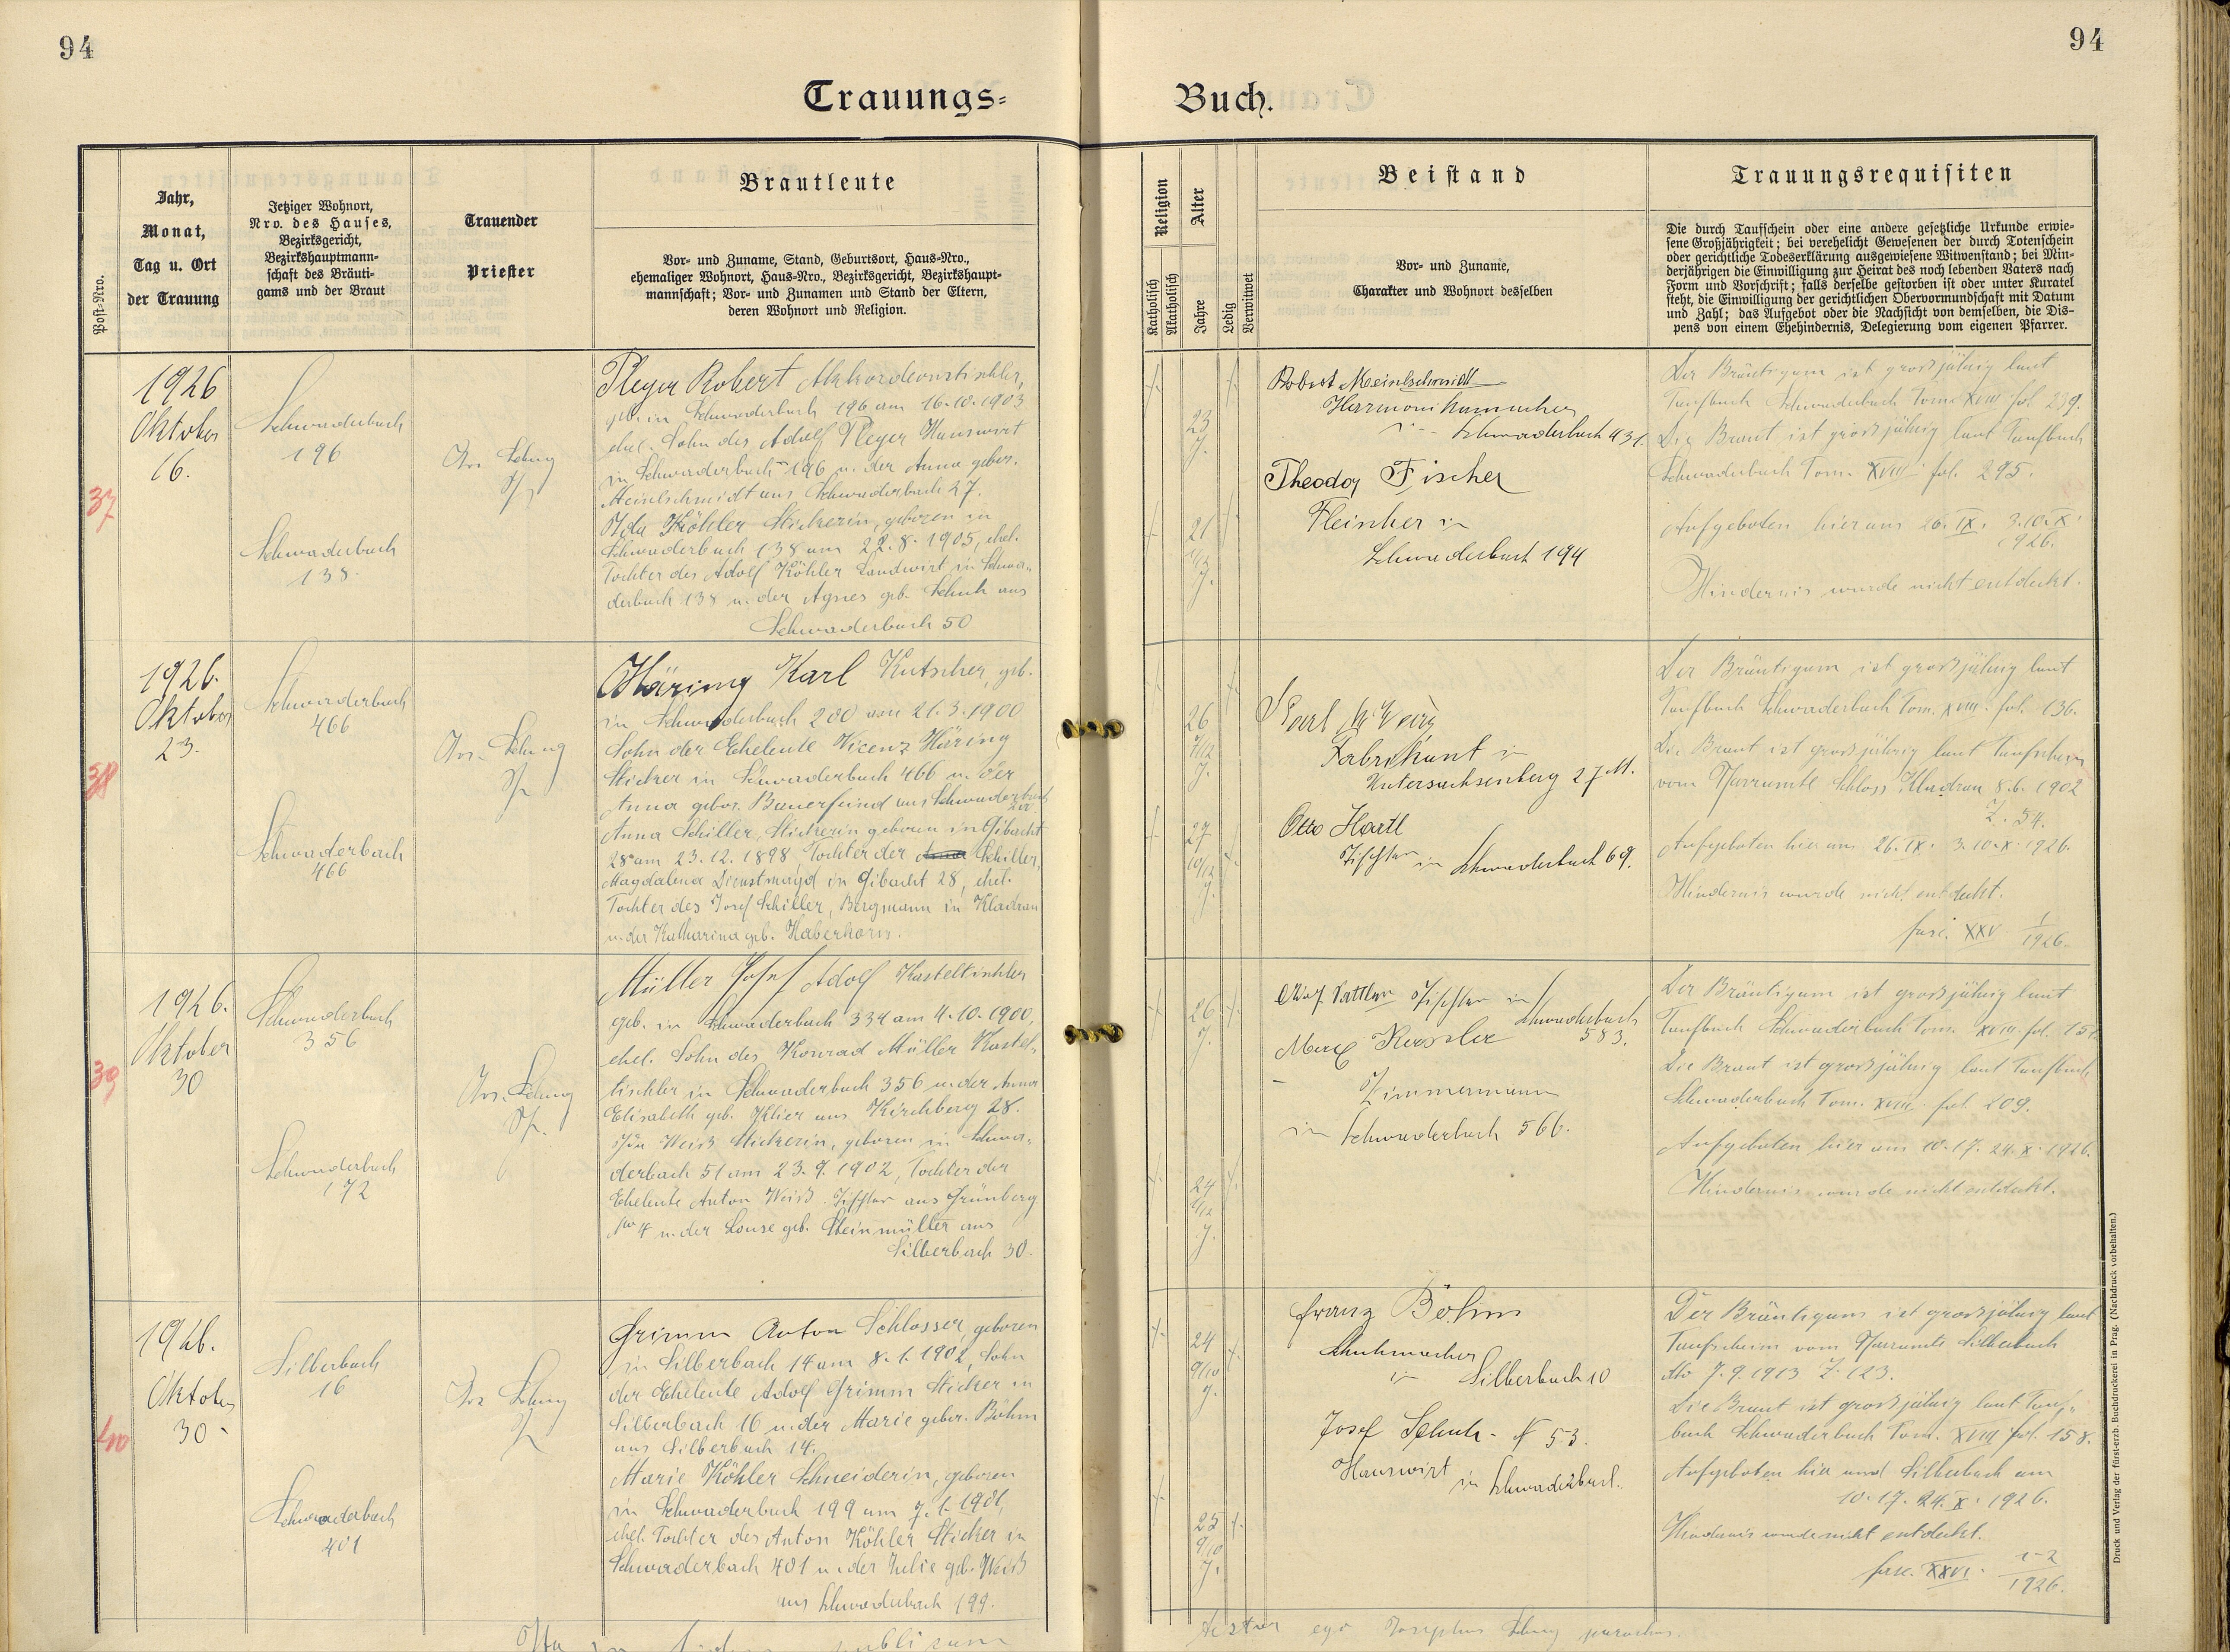 94
94
Trauungs=
Buch.
Post-Nro.
Jahr,
Monat,
Tag u. Ort
der Trauung
Jetziger Wohnort,
Nro. des Hauses,
Bezirksgericht,
Bezirkshauptmann-
schaft des Bräuti-
gams und der Braut
Trauender
Priester
Brautleute
Vor- und Zuname, Stand, Geburtsort, Haus-Nro.,
ehemaliger Wohnort, Haus-Nro., Bezirksgericht, Bezirkshaupt-
mannschaft; Vor- und Zunamen und Stand der Eltern,
deren Wohnort und Religion.
Religion
Katholisch
Akatholisch
Alter
Jahre
Ledig
Verwitwet
Beistand
Vor- und Zuname,
Charakter und Wohnort desselben
Trauungsrequisiten
Die durch Taufschein oder eine andere gesetzliche Urkunde erwie-
sene Großjährigkeit; bei verehelicht Gewesenen der durch Totenschein
oder gerichtliche Todeserklärung ausgewiesene Witwenstand; bei Min-
derjährigen die Einwilligung zur Heirat des noch lebenden Vaters nach
Form und Vorschrift; falls derselbe gestorben ist oder unter Kuratel
steht, die Einwilligung der gerichtlichen Obervormundschaft mit Datum
und Zahl; das Aufgebot oder die Nachsicht von demselben, die Dis-
pens von einem Ehehindernis, Delegierung vom eigenen Pfarrer.
37
1926
Oktober
16.
Schwaderbach
196
Schwaderbach
138.
Pleyer Robert Akkordeontischler,
geb. in Schwaderbach 196 am 16.10.1903
ehel. Sohn des Adolf Pleyer Hauswirt
in Schwaderbach 196 u. der Anna gebor.
Meinlschmidt aus Schwaderbach 27.
Ida Köhler Stickerin, geboren in
Schwaderbach 138 am 22.8.1905, ehel.
Tochter des Adolf Köhler Landwirt in Schwa-
derbach 138 u. der Agnes geb. Schuh aus
Schwaderbach 50
23
J.
21
J.
Robert Meinlschmidt
Harmonikamacher
Schwaderbach 431.
Theodor Fischer
Fleischer in
Schwaderbach 194
Der Bräutigam ist grossjährig laut
Taufbuch Schwaderbach Tom. XVIII fol. 239.
Die Braut ist grossjährig laut Taufbuch
Schwaderbach Tom. XVIII fol. 295.
Aufgeboten hier am 26. IX. 3.10. X.
1926.
Hindernis wurde nicht entdeckt.
38
1926.
Oktober
23.
Schwaderbach
466
Schwaderbach
466
Häring Karl Kutscher, geb.
in Schwaderbach 200 am 21.3.1900
Sohn der Eheleute Vicenz Häring
Sticker in Schwaderbach 466 u. der
Anna gebor. Bauerfeind aus Schwaderbach
Anna Schiller, Stickerin geboren in Gibacht
28 am 23.12.1898, Tochter der Anna Schiller,
Magdalena Dienstmagd in Gibacht 28, ehel.
Tochter des Josef Schiller, Bergmann in Kladrau
u. der Katharina geb. Haberkorn.
26
7/12
J.
27
10/12
J.
Fabrikant in
Untersachsenberg 27 M.
Otto Hartl
Tischler in Schwaderbach 69.
Der Bräutigam ist grossjährig laut
Taufbuch Schwaderbach Tom. XVIII. fol. 136.
Die Braut ist grossjährig laut Taufschein
vom Pfarramte Schloss Kladrau 8.6.1902
Z. 54.
Aufgeboten hier am 26. IX. 3.10. X. 1926.
Hindernis wurde nicht entdeckt.
fasc. XXV 1/1926.
39
1926.
Oktober
30
Schwaderbach
356
Schwaderbach
172
Müller Josef Adolf Kasteltischler
geb. in Schwaderbach 334 am 4.10.1900,
ehel. Sohn des Konrad Müller Kastel-
tischler in Schwaderbach 356 u. der Anna
Elisabeth geb. Klier aus Kirchberg 28.
Ida Weiß Stickerin, geboren in Schwa-
derbach 51 am 23.9.1902, Tochter der
Eheleute Anton Weiß Tischler aus Grünberg
No 7 u. der Louise geb. Steinmüller aus
Silberbach 30.
26
J.
24
1/12
J.
Tischler in
Schwaderbach
583.
Max Kessler
Zimmermann
in Schwaderbach 566.
Der Bräutigam ist grossjährig laut
Taufbuch Schwaderbach Tom. XVIII. fol. 151.
Die Braut ist grossjährig laut Taufbuch
Schwaderbach Tom. XVIII. fol. 209.
Aufgeboten hier am 10. 17. 24. X. 1926.
Hindernis wurde nicht entdeckt.
40
1926.
Oktober
30
Silberbach
16
Schwaderbach
401
Grimm Anton Schlosser, geboren
in Silberbach 14 am 8.1.1902, Sohn
der Eheleute Adolf Grimm Sticker in
Silberbach 16 u. der Marie gebor. Böhm
aus Silberbach 14.
Marie Köhler Schneiderin, geboren
in Schwaderbach 199 am 7.1.1901,
ehel. Tochter des Anton Köhler Sticker in
Schwaderbach 401 u. der Julie geb. Weiß
aus Schwaderbach 199.
24
9/10
J.
25
9/10
J.
Franz Böhm
Schuhmacher
in Silberbach 10
Josef Schuh - N 53.
Hauswirt
in Schwaderbach.
Der Bräutigam ist grossjährig laut
Taufschein vom Pfarramte Silberbach
dto 7.9.1913 Z. 123.
Die Braut ist grossjährig laut Tauf-
buch Schwaderbach Tom. XVIII fol. 158.
Aufgeboten hier und Silberbach am
10. 17. 24. X. 1926.
Hindernis wurde nicht entdeckt.
fasc. XXVI. 1-2/1926.
ego Josephus parochus.
Druck und Verlag der fürst-erzb. Buchdruckerei in Prag. (Nachdruck vorbehalten.)